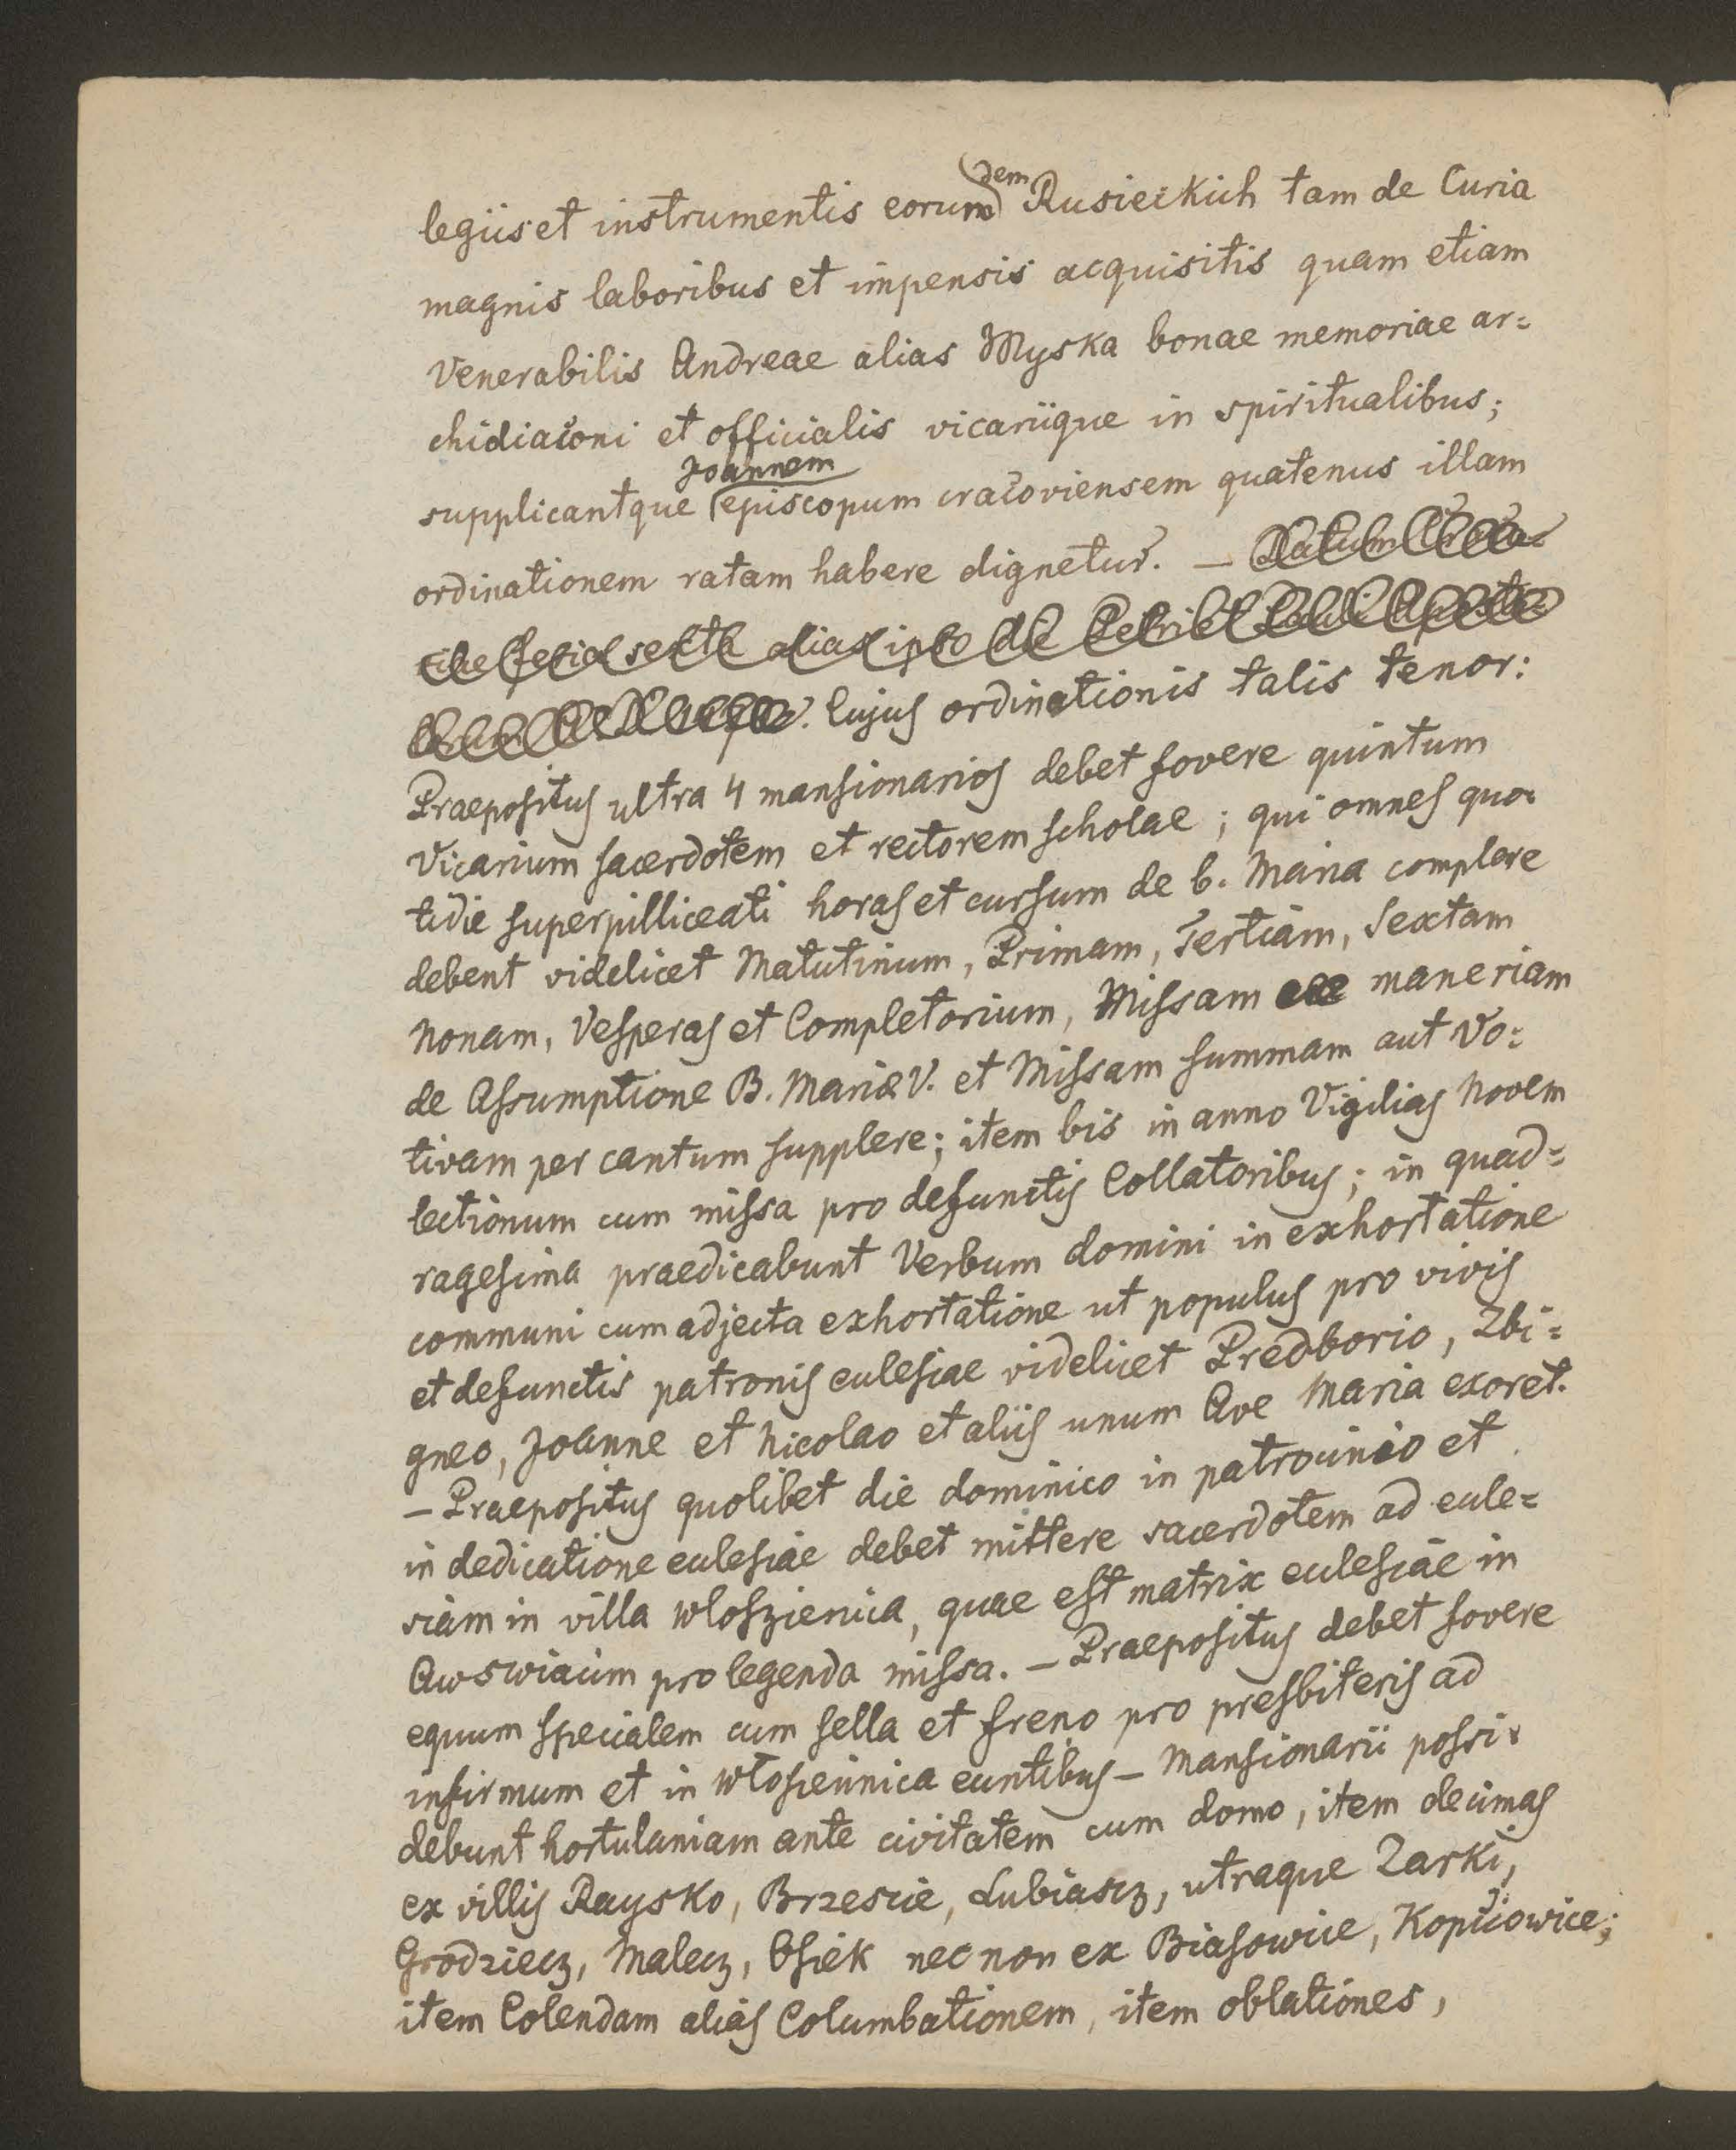 legiis et instrumentis eorundem Rusieckich tam de Curia
magnis laboribus et impensis acquisitis quam etiam
Venerabilis Andreae alias Myska bonae memoriae ar=
chidiaconi et officialis vicariique in spiritualibus;
supplicantque Joannem episcopum cracoviensem quatenus illam
ordinationem ratam habere dignetur. —
feria sexta alias ipso die Petri et Pauli
Cujus ordinationis talis tenor:
Praepositus ultra 4 mansionarios debet fovere quintum
Vicarium sacerdotem et rectorem scholae; qui omnes quo=
tidie superpilliceati horas et cursum de b. Maria complere
debent videlicet Matutinum, Primam, Tertiam, Sextam
Nonam, Vesperas et Completorium, Missam maneriam
de Assumptione B. Mariae V. et Missam summam aut Vo=
tivam per cantum supplere; item bis in anno Vigilias Novem
lectionum cum missa pro defunctis Collatoribus; in quad=
ragesima praedicabunt Verbum domini in exhortatione
communi cum adjecta exhortatione ut populus pro vivis
et defunctis patronis ecclesiae videlicet Predborio, Zbi=
gneo, Joanne et Nicolao et aliis unum Ave Maria exoret.
— Praepositus quolibet die dominico in patrocinio et
in dedicatione ecclesiae debet mittere sacerdotem ad eccle=
siam in villa Wloszienica, quae est matrix ecclesiae in
Awswiacim pro legenda missa. — Praepositus debet fovere
equum specialem cum sella et freno pro presbiteris ad
infirmum et in Włosiennica euntibus — Mansionarii possi=
debunt hortulaniam ante civitatem cum domo, item decimas
ex villis Raysko, Brzescie, Lubiascz, utraque Zarki,
Grodziecz, Malecz, Osiek nec non ex Biasowice, Kopciowice;
item Colendam alias Columbationem, item oblationes,